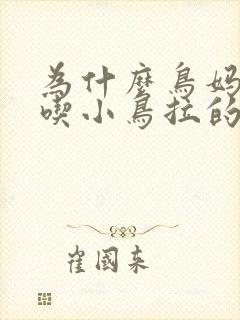 為什麼鳥媽
喫小鳥拉的
崔國来